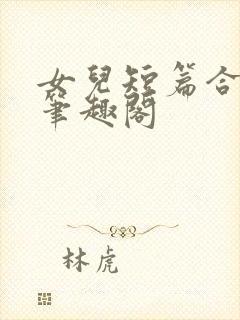 女兒短篇合
筆趣閣
林虎